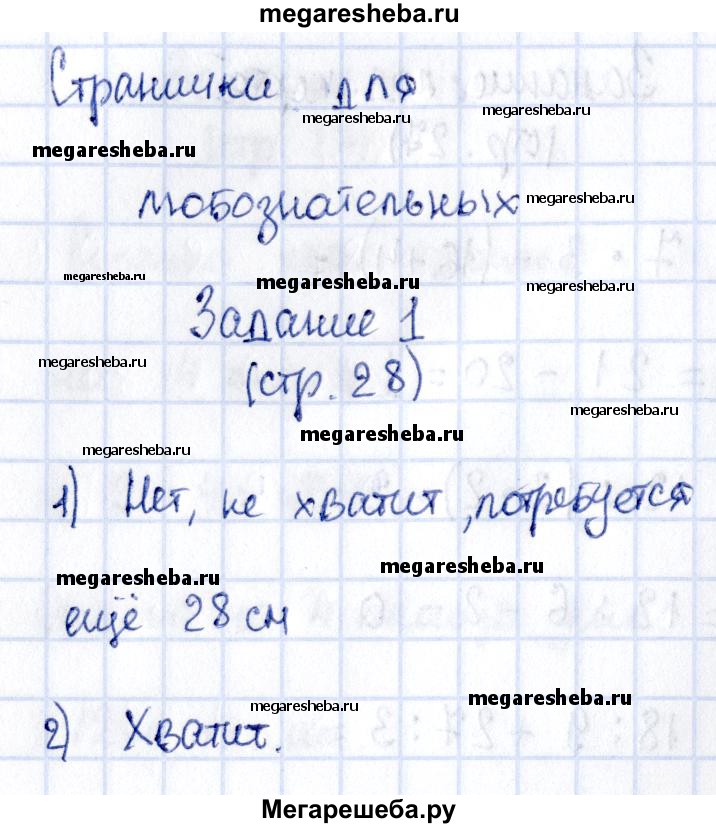 megaresheba.ru
Странички для
megaresheba.ru
megaresheba.ru
megaresheba.ru
любознательных
megaresheba.ru
megaresheba.ru
megaresheba.ru
megaresheba.ru
Задание 1
megaresheba.ru
(стр. 28)
megaresheba.ru
megaresheba.ru
megaresheba.ru
1) Нет, не хватит, потребуется
megaresheba.ru
megaresheba.ru
ещё 28 см
megaresheba.ru
megaresheba.ru
2) Хватит.
Мегарешеба.ру